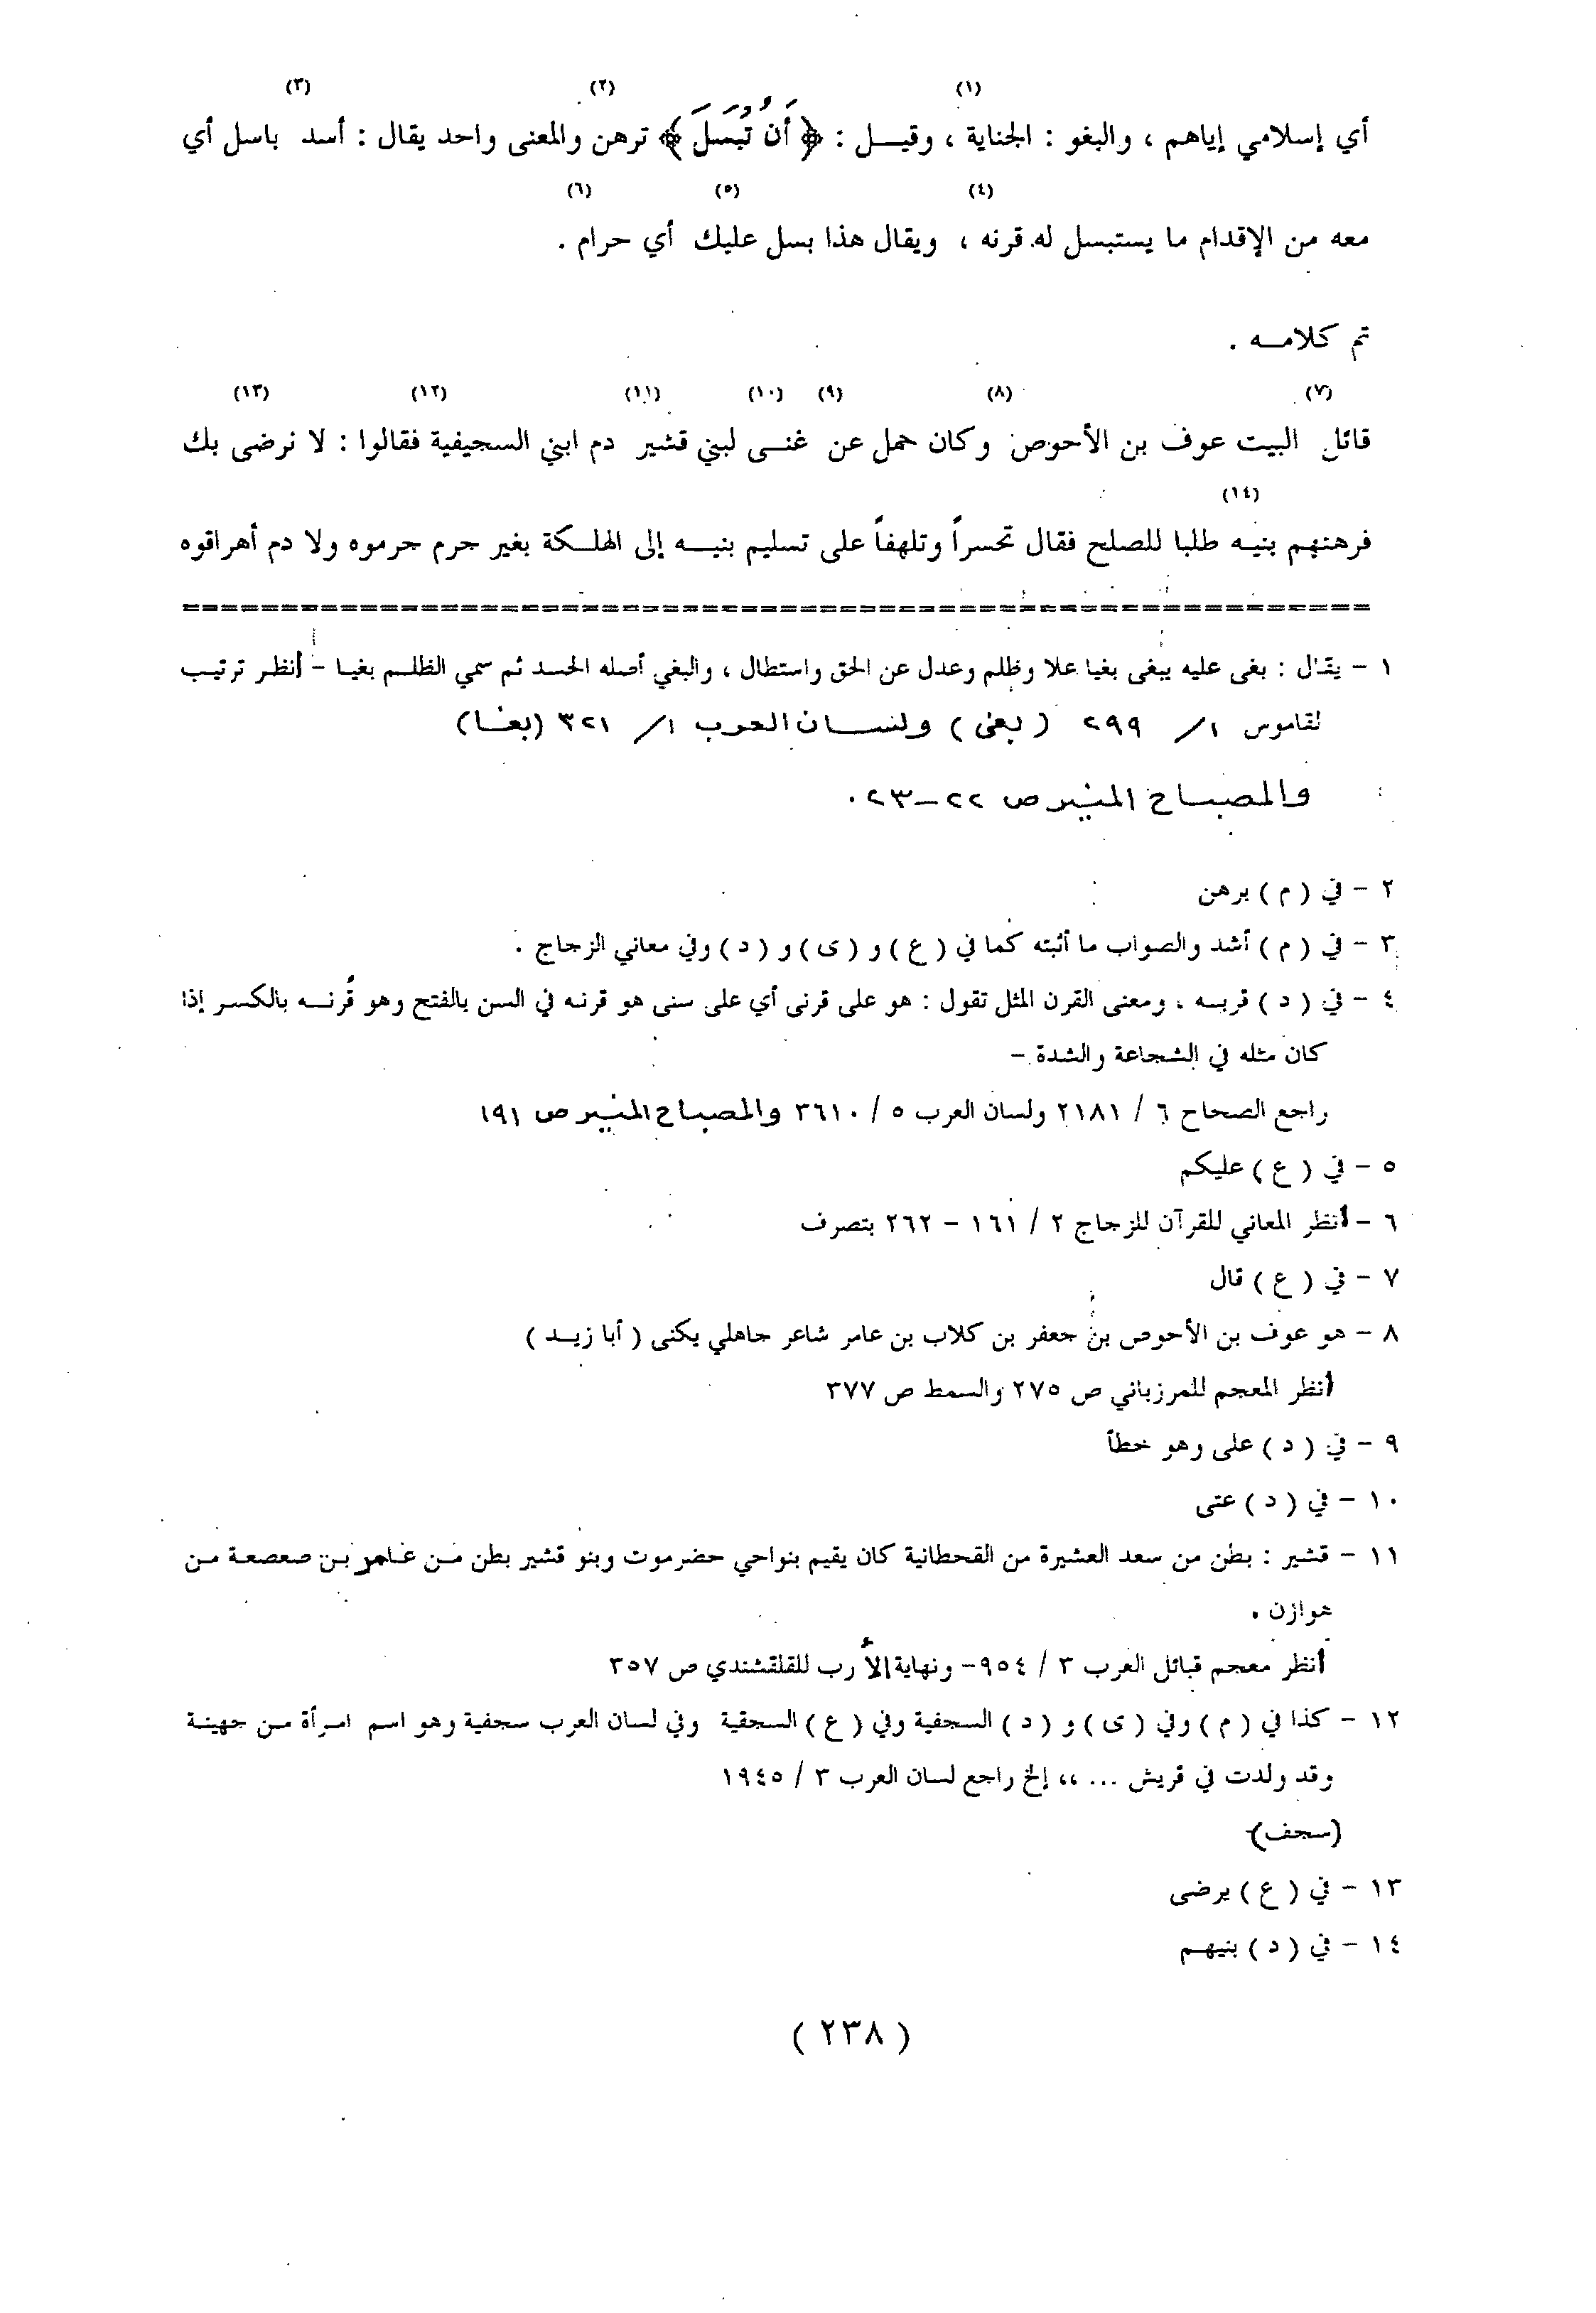 (١) (٢) (٣)
أي إسلامي إياهم ، والبغو : الجناية ، وقيــل : ﴿ أَن تُبْسَلَ ﴾ ترهن والمعنى واحد يقال : أسد باسل أي
(٤) (٥) (٦)
معه من الإقدام ما يستبسل له قرنه ، ويقال هذا بسل عليك أي حرام .
تم كلامــه .
(٧) (٨) (٩) (١٠) (١١) (١٢) (١٣)
قائل البيت عوف بن الأحوص وكان حمل عن غنــى لبني قشير دم ابني السجيفية فقالوا : لا نرضى بك
(١٤)
فرهنهم بنيه طلبا للصلح فقال تحسراً وتلهفاً على تسليم بنيــه إلى الهلــكة بغير جرم جرموه ولا دم أهراقوه
١ - يقال : بغى عليه يبغى بغيا علا وظلم وعدل عن الحق واستطال ، والبغي أصله الحسد ثم سمي الظلــم بغيـا - أنظـر ترتيـب
لقاموس ١/ ٢٩٩ ( بغى ) ولســان العرب ١/ ٣٢١ (بغــا)
والمصبــاح المنيــر ص ٢٢-٢٣.
٢ - في ( م ) برهن
٣ - في ( م ) أشد والصواب ما أثبته كما في ( ع ) و ( ى ) و ( د ) وفي معاني الزجاج .
٤ - في ( د ) قربــه ، ومعنى القرن المثل تقول : هو على قرنى أي على سنى هو قرنـه في السن بالفتح وهو قُرنــه بالكسـر إذا
كان مثله في الشجاعة والشدة -
راجع الصحاح ٦ / ٢١٨١ ولسان العرب ٥ / ٣٦١٠ والمصبــاح المنيــر ص ١٩١
٥ - في ( ع ) عليكم
٦ - أنظر المعاني للقرآن للزجاج ٢ / ١٦١ - ٢٦٢ بتصرف
٧ - في ( ع ) قال
٨ - هو عوف بن الأحوص بن جعفر بن كلاب بن عامر شاعر جاهلي يكنى ( أبا زيــد )
أنظر المعجم للمرزباني ص ٢٧٥ والسمط ص ٣٧٧
٩ - في ( د ) على وهو خطأ
١٠ - في ( د ) عتى
١١ - قشير : بطن من سعد العشيرة من القحطانية كان يقيم بنواحي حضرموت وبنو قشير بطن مـن عـامر بـن صعصعـة مـن
هوازن .
أنظر معجم قبائل العرب ٣ / ٩٥٤- ونهاية الأرب للقلقشندي ص ٣٥٧
١٢ - كذا في ( م ) وفي ( ى ) و ( د ) السجفية وفي ( ع ) السحقية وفي لسان العرب سجفية وهو اسم امـرأة مـن جهينـة
وقد ولدت في قريش ... ،، إلخ راجع لسان العرب ٣ / ١٩٤٥
(سجف)
١٣ - في ( ع ) يرضى
١٤ - في ( د ) بنيهـم
( ٢٣٨ )